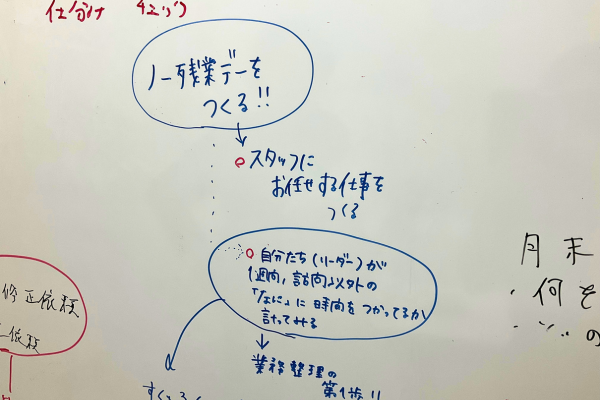 仕分け チェック
ノー残業デーを
つくる!!
スタッフに
お任せする仕事を
つくる
自分たち(リーダー)が
1週間、訪問以外の
「なに」に時間をつかってるか
計ってみる
業務整理の
第1歩!!
修正依頼
依頼
月末
・何を
・いつ